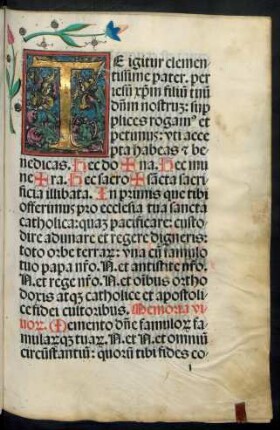 TE igitur clemen-
tissime pater. per
iesū xp̄m filiū tuū
dn̄m nostrū: sup
plices rogam⁹ et
petimus: vti acce
pta habeas ⁊ be
nedicas. Hec do ✠ na. Hec mu
ne ✠ ra. Hec sacro ✠ sācta sacri
ficia illibata. In primis que tibi
offerimus pro ecclesia tua sancta
catholica: quaꝫ pacificare: custo
dire adunare et regere digneris:
toto orbe terraꝝ: vna cū famulo
tuo papa nr̄o. N. et antistite nr̄o.
N. et rege nr̄o. N. et oībus ortho
doxis atqꝫ catholice et apostoli
ce fidei cultoribus. Memoria vi
uoꝝ. Memento dn̄e famuloꝝ fa-
mularūqꝫ tuaꝝ. N. et N. et omniū
circūstantiū: quorū tibi fides co